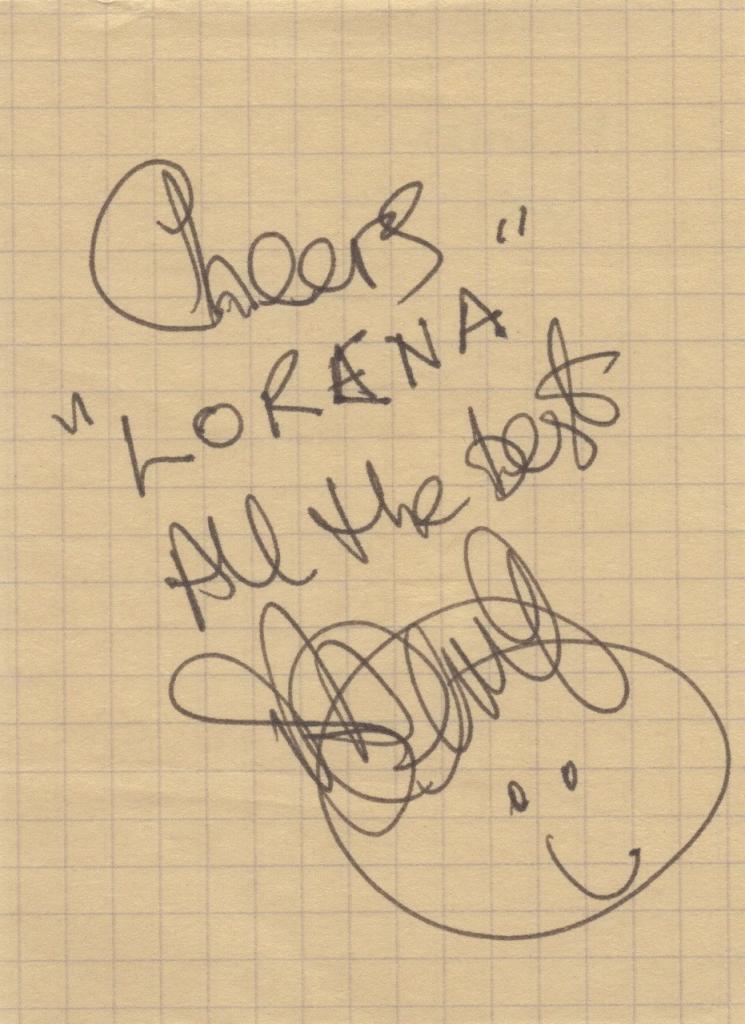 Cheers
"LORENA"
All the best